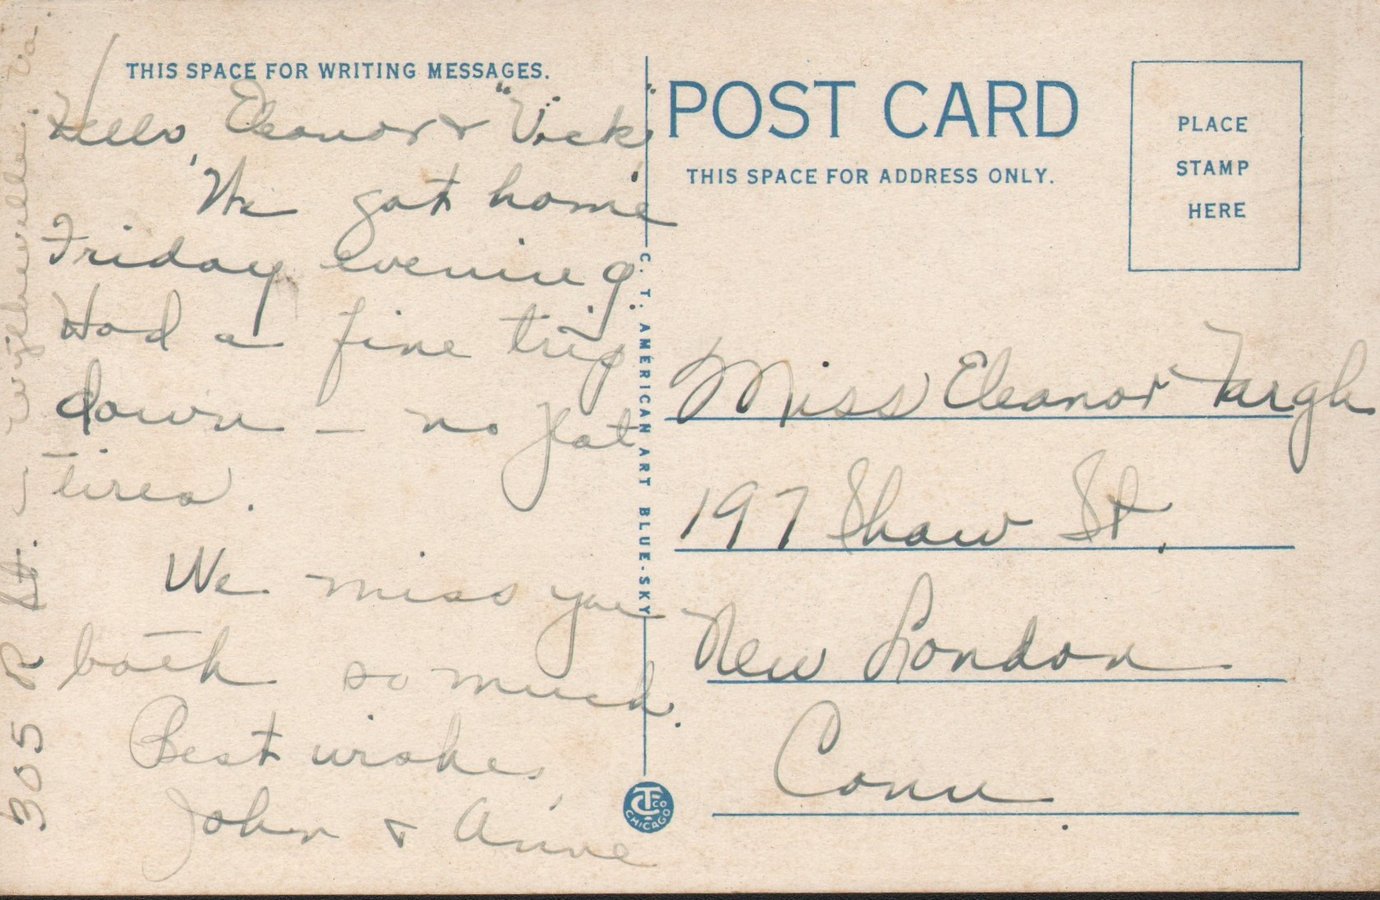 THIS SPACE FOR WRITING MESSAGES.
Hello, Eleanor + "Vick"
We got home
Friday evening.
Had a fine trip
down — no flat
tires.
We miss you
both so much.
Best wishes,
John + Anne
305 R St. Wytheville, Va.
C. T. AMERICAN ART BLUE-SKY
CTCO CHICAGO
POST CARD
THIS SPACE FOR ADDRESS ONLY.
PLACE
STAMP
HERE
Miss Eleanor Fargh
197 Shaw St.
New London
Conn.